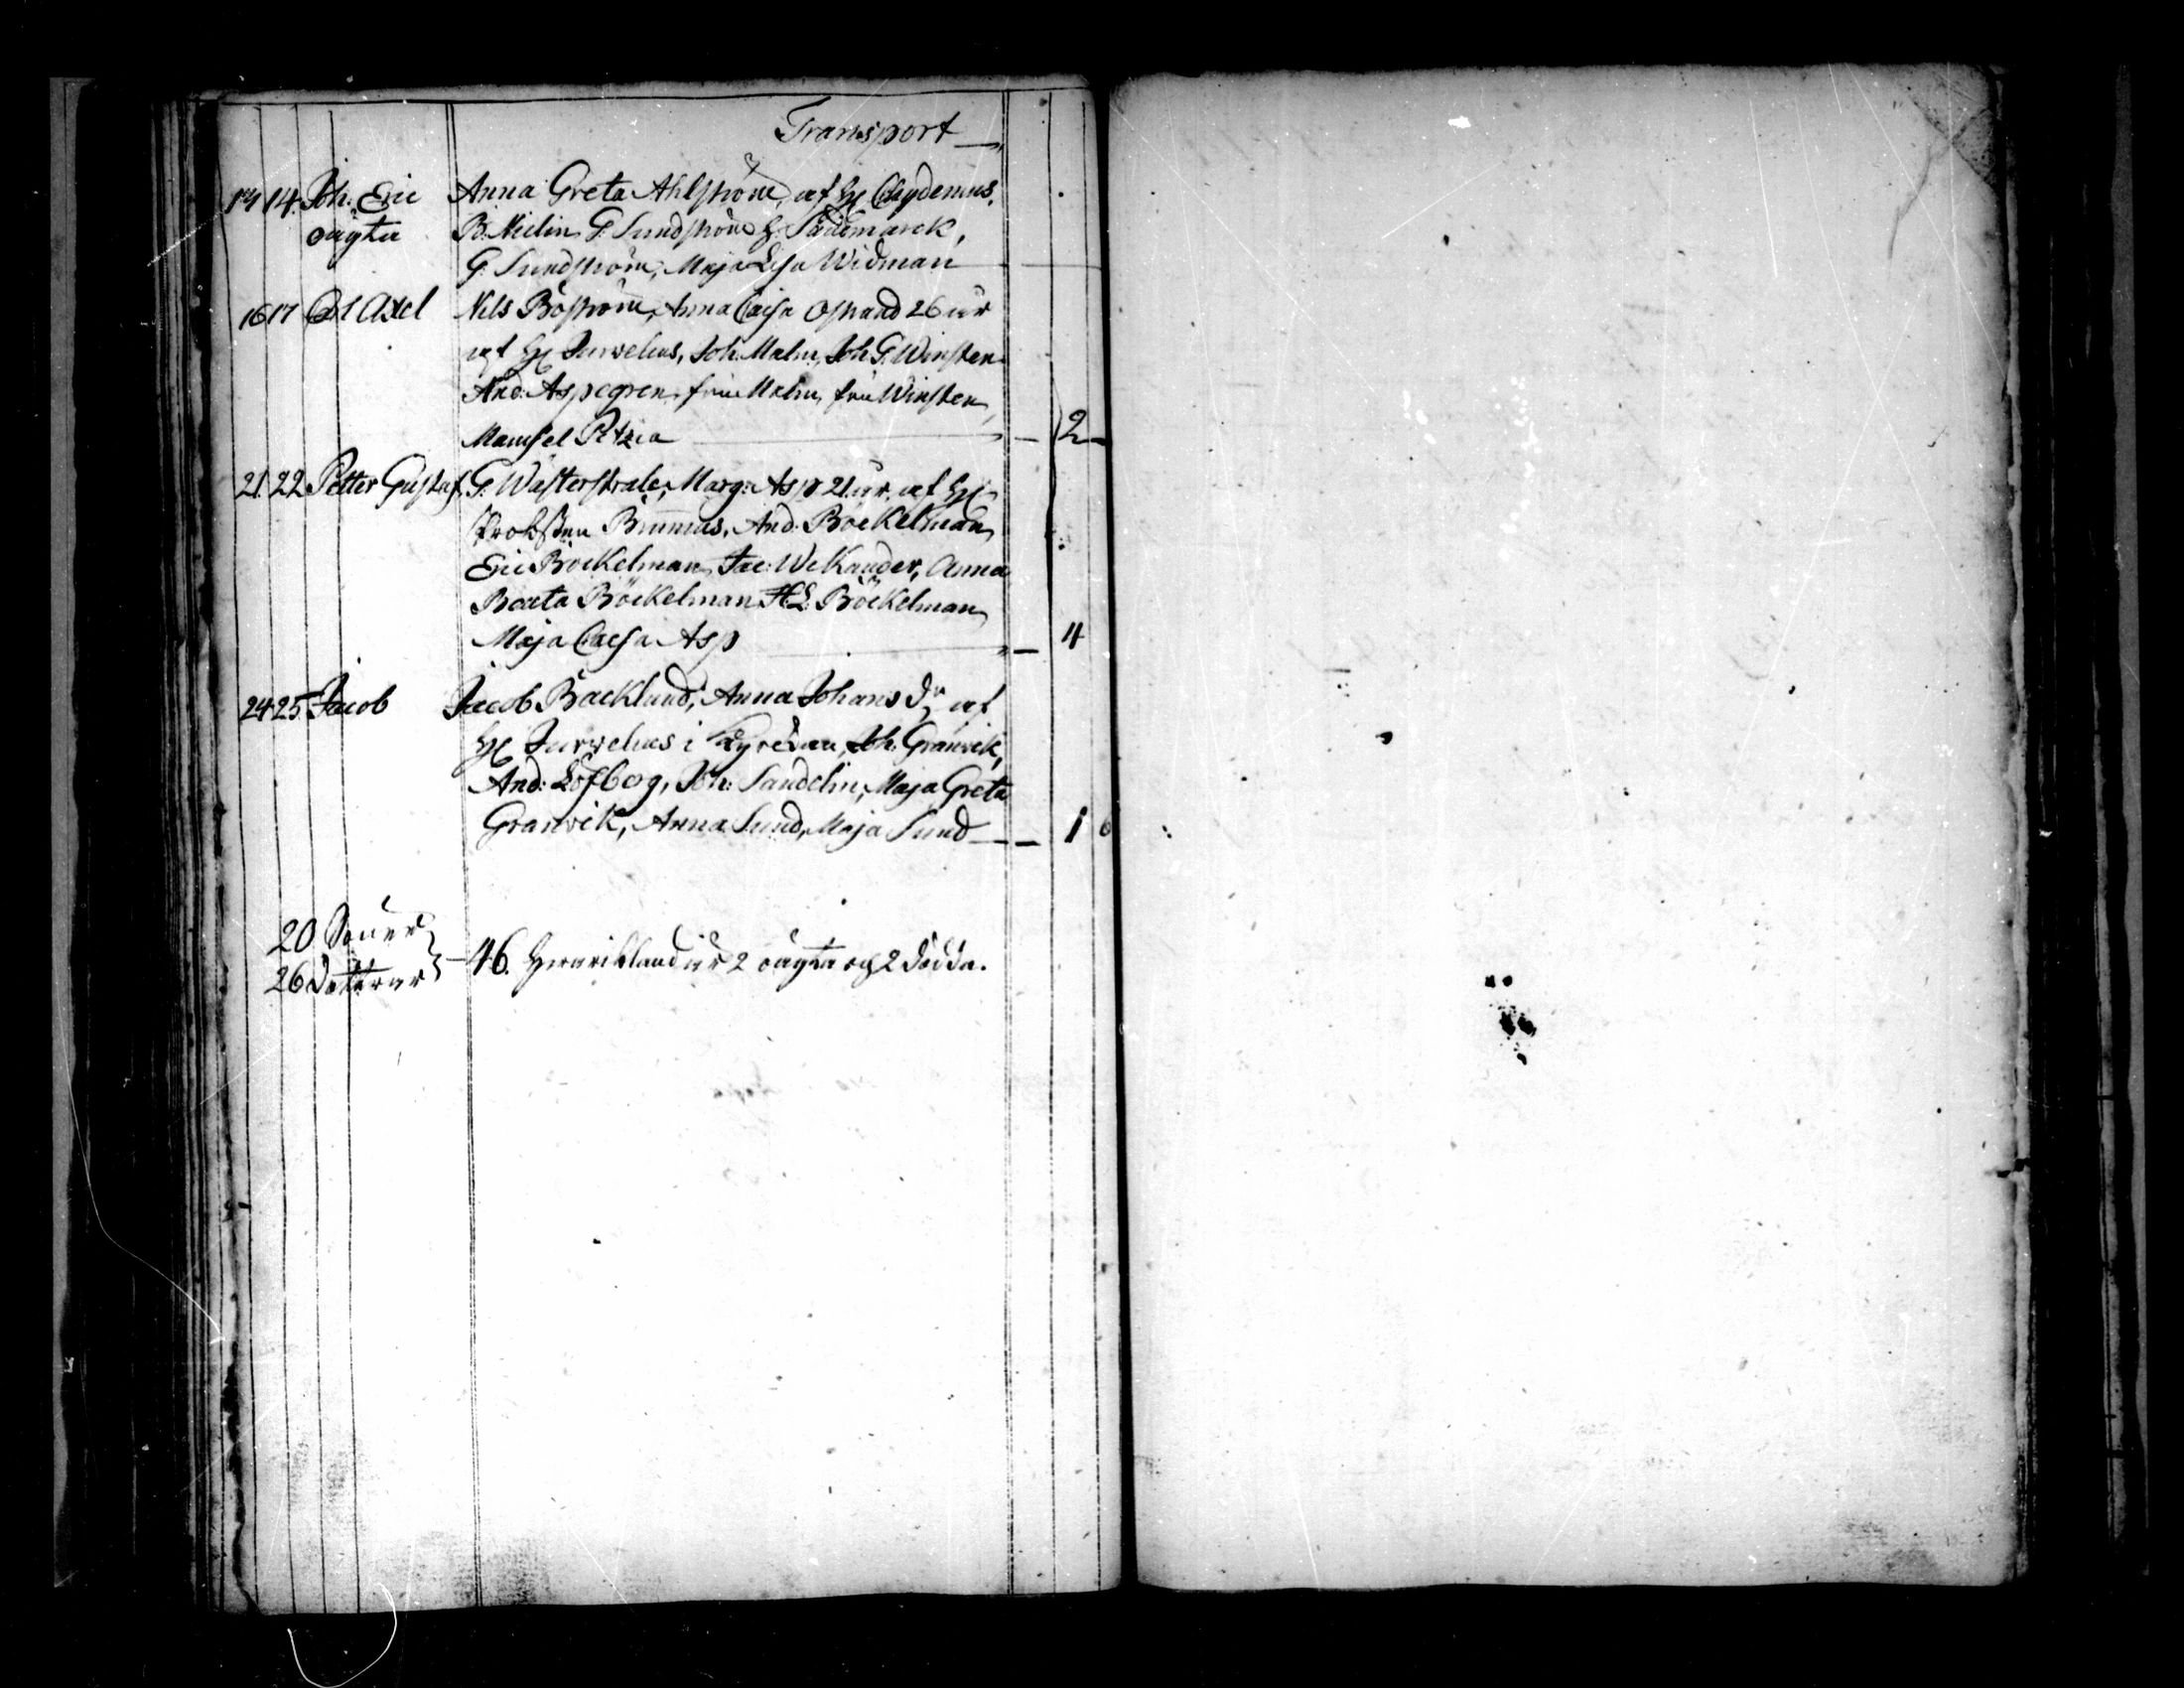 Transport
14 14. Joh. Eric Anna Greta Ahlström, af H Chydenius,
oägta B. Melin G. Sundström H. Södermarck,
G. Sundström, Maja Lisa Widman
16 17 Axel Nils Boström, Anna Caisa Ostrand 26 år
af H Jurvelius, Joh. Malm, Joh. G. Winsten
And: Aspegren, fru Malm, fru Winsten,
Mamsel Petzia — 2 —
21. 22 Petter Gustaf G. Wasterstrale, Marg: Asp 21 år, af H
Probsten And: Böckelman,
Eric Böckelman, Jac: Wekander, Anna
Beata Böckelman H L: Böckelman,
Maja Caisa Asp — 4
24 25. Jacob Jacob Backlund, Anna Johans dr af
H Jurvelius i Joh: Granwik,
And: Löfberg, Joh: Sandelin, Maja Greta
Granwik, Anna Sund, Maja Sund — 1 6
20 Söner
26 Döttrar } – 46. Hvaribland är 2 oägta och 2 dödda.